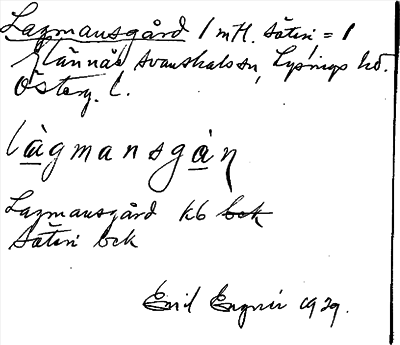 Lagmansgård 1 mtl. säteri = 1
Hannäs Svanshals sn, Lysings hd.
Österg. l.
làgmansgàṇ
Lagmansgård kb bck
Säteri bck
Emil Engner 1929.